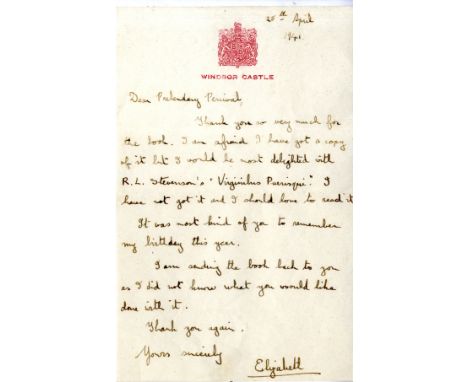 25th April
1941
WINDSOR CASTLE
Dear Prebendary Percival,
Thank you so very much for
the book. I am afraid I have got a copy
of it but I would be most delighted with
R.L. Stevenson's "Virginibus Puerisque". I
have not got it and I should love to read it
It was most kind of you to remember
my birthday this year.
I am sending the book back to you
as I did not know what you would like
done with it.
Thank you again.
Yours sincerely
Elizabeth